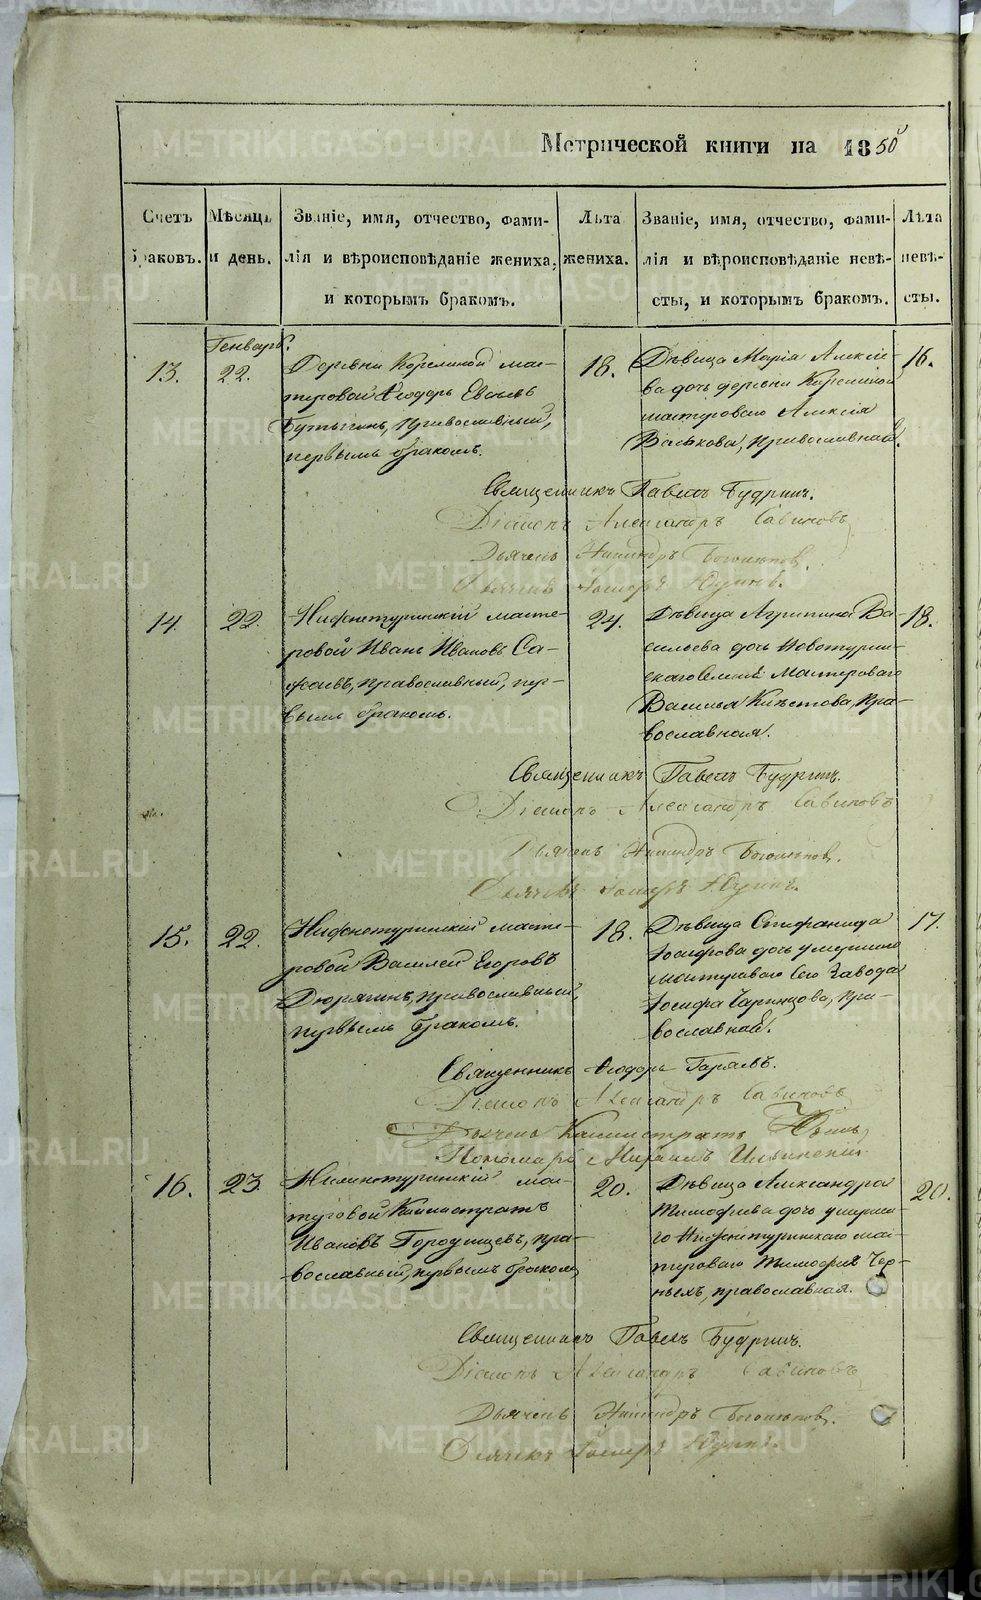 Метрической книги на 1850й
Счетъ браковъ.
Мѣсяцъ и день.
Званіе, имя, отчество, фами-
лія и вѣроисповѣданіе жениха,
и которымъ бракомъ.
Лѣта жениха.
Званіе, имя, отчество, фами-
лія и вѣроисповѣданіе невѣ-
сты, и которымъ бракомъ.
Лѣта невѣ-
сты.
Генварь.
13.
22.
Деревни Корелиной мас-
теровой Ѳеодоръ
православный,
первымъ бракомъ.
18.
Дѣвица Марія Алексіе-
ва дочь деревни Корелиной
мастероваго Алексія
Волкова, православная.
16.
Священникъ Павелъ Будринъ.
Діаконъ Александръ Савиновъ
Дьячекъ
14.
22.
Нижнетуринскій масте-
ровой Иванъ Ивановъ Са-
жаевъ, православный, пер-
вымъ бракомъ.
24.
Дѣвица Агрипина Ва-
сильева дочь Новотурин-
скаго Селенія Мастероваго
Василья православная.
18.
Священникъ Павелъ Будринъ.
Діаконъ Александръ Савиновъ
Дьячекъ
15.
22.
Нижнетуринскій масте-
ровой Василей Егоровъ
Дюрягинъ, православный,
первымъ бракомъ.
18.
Дѣвица Стефанида
Іосифова дочь умершаго
мастероваго Сего Завода
Іосифа православная.
17.
Священникъ Ѳеодоръ Гаряевъ.
Діаконъ Александръ Савиновъ
Дьячекъ Каллистратъ
Пономарь Михаилъ Ильинскій.
16.
23.
Нижнетуринскій мас-
теровой Каллистратъ
Ивановъ Городищевъ, пра-
вославный, первымъ бракомъ,
20.
Дѣвица Александра
Тимофѣева дочь умерша-
го Нижнетуринскаго мас-
тероваго Тимофея Чер-
ныхъ, православная.
20.
Священникъ Павелъ Будринъ.
Діаконъ Александръ Савиновъ
Дьячекъ
METRIKI.GASO-URAL.RU